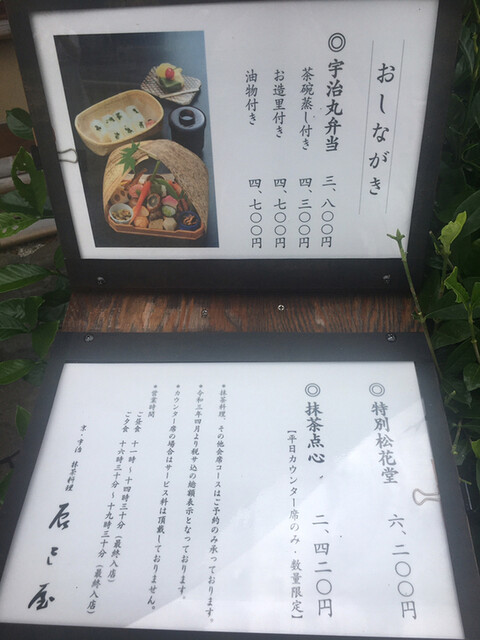 おしながき
◎宇治丸弁当 三、八〇〇円
茶碗蒸し付き 四、三〇〇円
お造里付き 四、七〇〇円
油物付き 四、七〇〇円
◎特別松花堂 六、二〇〇円
◎抹茶点心 二、四二〇円
【平日カウンター席のみ・数量限定】
*抹茶料理、その他会席コースはご予約のみ承っております。
*令和三年四月より税サ込の総額表示となっております。
*カウンター席の場合はサービス料は頂戴しておりません。
*営業時間
ご昼食 十一時～十四時三十分(最終入店)
ご夕食 十六時三十分～十九時三十分(最終入店)
京・宇治 抹茶料理 辰巳屋